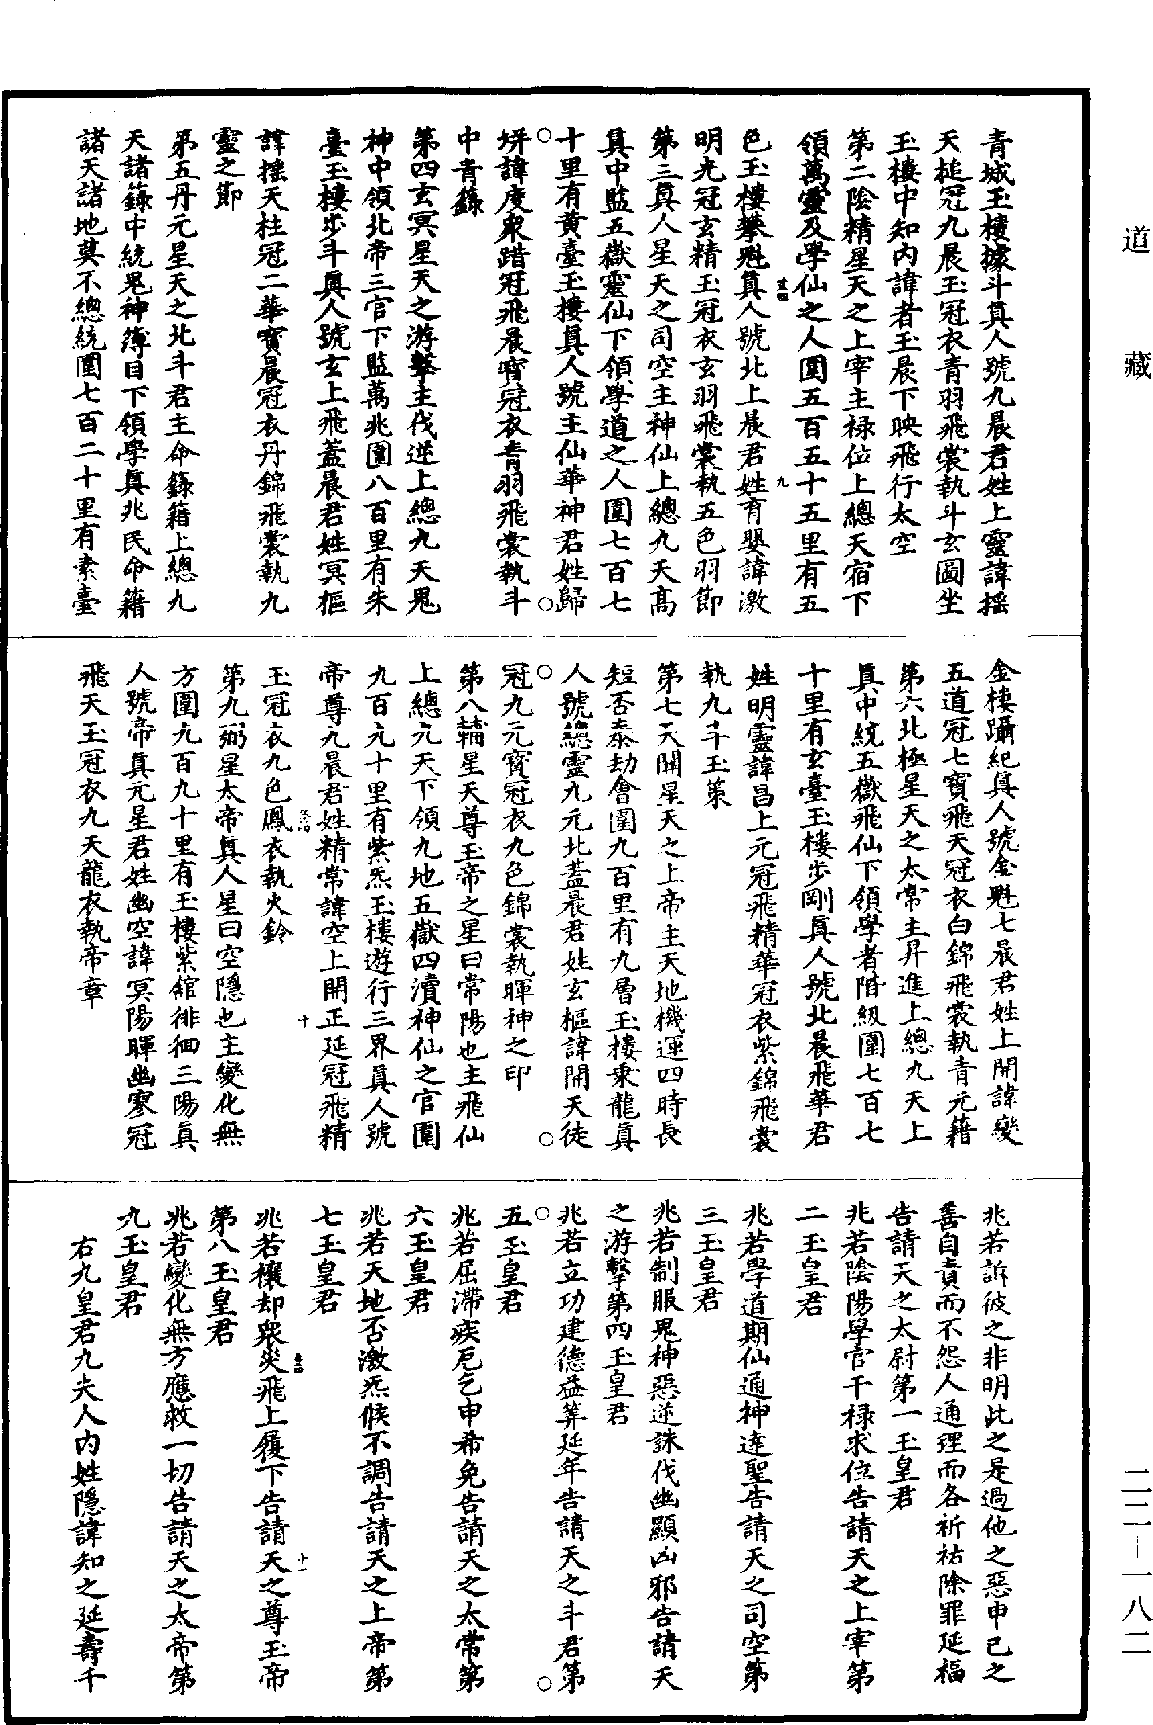 道藏
二二—一八二
青城玉樓據斗真人號九晨君姓上靈諱搖
天槌冠九晨玉冠衣青羽飛裳執斗玄圖坐
玉樓中知內諱者玉晨下映飛行太空
第二陰精星天之上宰主祿位上總天宿下
領萬靈及學仙之人圍五百五十五里有五
色玉樓攀魁真人號北上晨君姓育嬰諱激
明光冠玄精玉冠衣玄羽飛裳執五色羽節
第三真人星天之司空主神仙上總九天高
真中監五嶽靈仙下領學道之人圍七百七
十里有黃臺玉樓真人號主仙華神君姓歸
○姘諱度眾踖冠飛晨寶冠衣青羽飛裳執斗○
中青籙
第四玄冥星天之游擊主伐逆上總九天鬼
神中領北帝三官下監萬兆圍八百里有朱
臺玉樓步斗真人號玄上飛蓋晨君姓冥樞
諱搖天柱冠二華寶晨冠衣丹錦飛裳執九
靈之節
第五丹元星天之北斗君主命籙籍上總九
天諸籙中統鬼神簿目下領學真兆民命籍
諸天諸地莫不總統圍七百二十里有素臺
金樓躡紀真人號金魁七晨君姓上開諱變
五道冠七寶飛天冠衣白錦飛裳執青元籍
第六北極星天之太常主昇進上總九天上
真中統五嶽飛仙下領學者階級圍七百七
十里有玄臺玉樓步剛真人號北晨飛華君
姓明靈諱昌上元冠飛精華冠衣紫錦飛裳
執九斗玉策
第七天關星天之上帝主天地機運四時長
短否泰劫會圍九百里有九層玉樓乘龍真
人號總靈九元北蓋晨君姓玄樞諱開天徒
○冠九元寶冠衣九色錦裳執暉神之印○
第八輔星天尊玉帝之星曰常陽也主飛仙
上總九天下領九地五嶽四瀆神仙之官圍
九百九十里有紫炁玉樓遊行三界真人號
帝尊九晨君姓精常諱空上開正延冠飛精
玉冠衣九色鳳衣執火鈴
第九弼星太帝真人星曰空隱也主變化無
方圍九百九十里有玉樓紫館徘徊三陽真
人號帝真元星君姓幽空諱冥陽暉幽寥冠
飛天玉冠衣九天龍衣執帝章
兆若訴彼之非明此之是過他之惡申己之
善自責而不怨人通理而各祈祐除罪延福
告請天之太尉第一玉皇君
兆若陰陽學官干祿求位告請天之上宰第
二玉皇君
兆若學道期仙通神達聖告請天之司空第
三玉皇君
兆若制服鬼神惡逆誅伐幽顯凶邪告請天
之游擊第四玉皇君
兆若立功建德益算延年告請天之斗君第
○五玉皇君○
兆若屈滯疾厄乞申希免告請天之太常第
六玉皇君
兆若天地否激炁候不調告請天之上帝第
七玉皇君
兆若禳却眾災飛上履下告請天之尊玉帝
第八玉皇君
兆若變化無方應救一切告請天之太帝第
九玉皇君
右九皇君九夫人內姓隱諱知之延壽千
九
十
十一